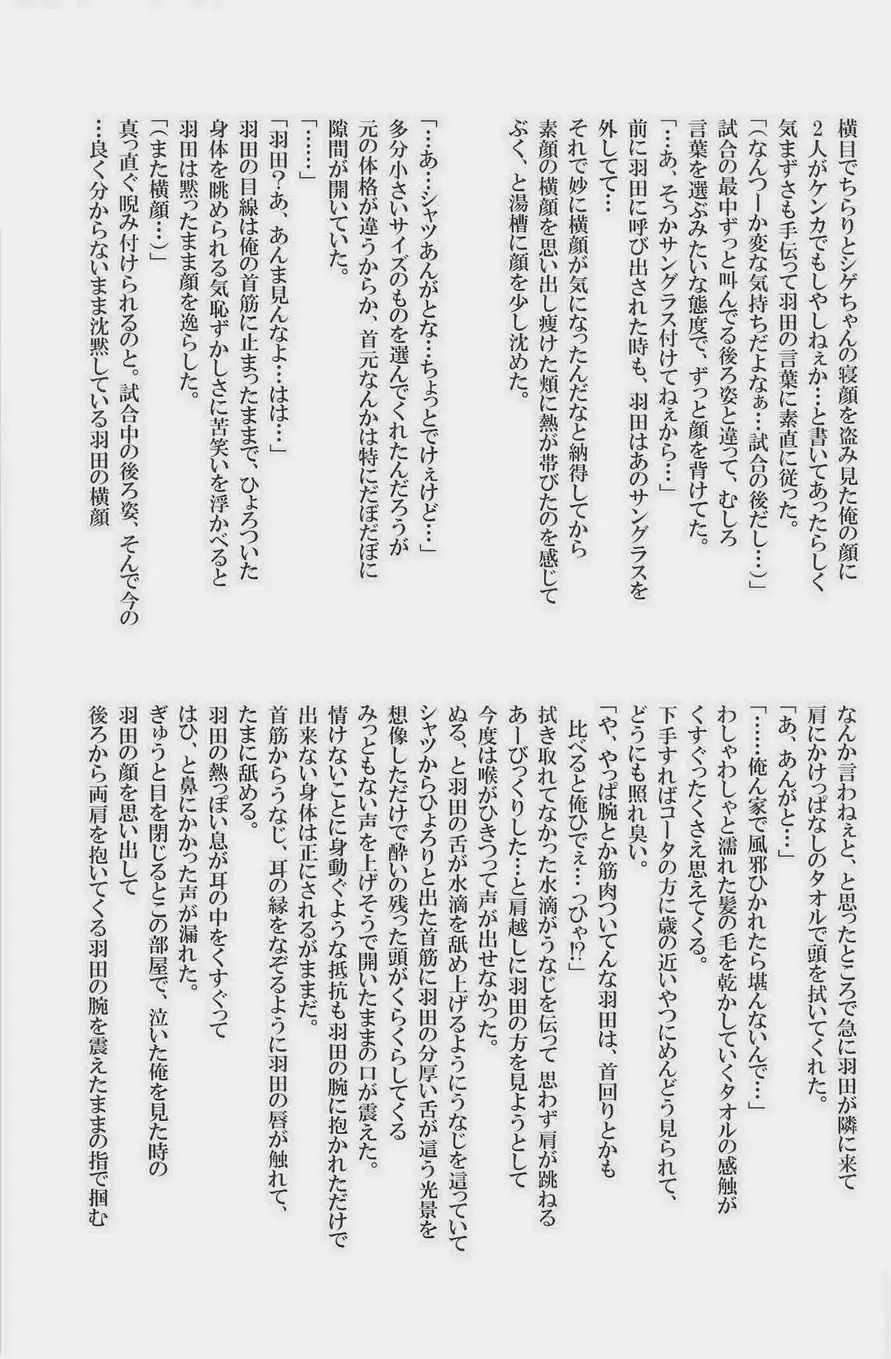 横目でちらりとシゲちゃんの寝顔を盗み見た俺の顔に
2人がケンカでもしやしねぇか…と書いてあったらしく
気まずさも手伝って羽田の言葉に素直に従った。
「(なんつーか変な気持ちだよなぁ…試合の後だし…)」
試合の最中ずっと叫んでる後ろ姿と違って、むしろ
言葉を選ぶみたいな態度で、ずっと顔を背けてた。
「…あ、そっかサングラス付けてねぇから…」
前に羽田に呼び出された時も、羽田はあのサングラスを
外してて…
それで妙に横顔が気になったんだなと納得してから
素顔の横顔を思い出し痩けた頬に熱が帯びたのを感じて
ぶく、と湯槽に顔を少し沈めた。
「…あ…シャツあんがとな…ちょっとでけぇけど…」
多分小さいサイズのものを選んでくれたんだろうが
元の体格が違うからか、首元なんかは特にだぼだぼに
隙間が開いていた。
「……」
「羽田?あ、あんま見んなよ…はは…」
羽田の目線は俺の首筋に止まったままで、ひょろついた
身体を眺められる気恥ずかしさに苦笑いを浮かべると
羽田は黙ったまま顔を逸らした。
「(また横顔…)」
真っ直ぐ睨み付けられるのと。試合中の後ろ姿、そんで今の
…良く分からないまま沈黙している羽田の横顔
なんか言わねぇと、と思ったところで急に羽田が隣に来て
肩にかけっぱなしのタオルで頭を拭いてくれた。
「あ、あんがと…」
「……俺ん家で風邪ひかれたら堪んないんで…」
わしゃわしゃと濡れた髪の毛を乾かしていくタオルの感触が
くすぐったくさえ思えてくる。
下手すればコータの方に歳の近いやつにめんどう見られて、
どうにも照れ臭い。
「や、やっぱ腕とか筋肉ついてんな羽田は、首回りとかも
比べると俺ひでぇ…っひゃ!?」
拭き取れてなかった水滴がうなじを伝って 思わず肩が跳ねる
あーびっくりした…と肩越しに羽田の方を見ようとして
今度は喉がひきつって声が出せなかった。
ぬる、と羽田の舌が水滴を舐め上げるようにうなじを這っていて
シャツからひょろりと出た首筋に羽田の分厚い舌が這う光景を
想像しただけで酔いの残った頭がくらくらしてくる
みっともない声を上げそうで開いたままの口が震えた。
情けないことに身動ぐような抵抗も羽田の腕に抱かれただけで
出来ない身体は正にされるがままだ。
首筋からうなじ、耳の縁をなぞるように羽田の唇が触れて、
たまに舐める。
羽田の熱っぽい息が耳の中をくすぐって
はひ、と鼻にかかった声が漏れた。
ぎゅうと目を閉じるとこの部屋で、泣いた俺を見た時の
羽田の顔を思い出して
後ろから両肩を抱いてくる羽田の腕を震えたままの指で掴む